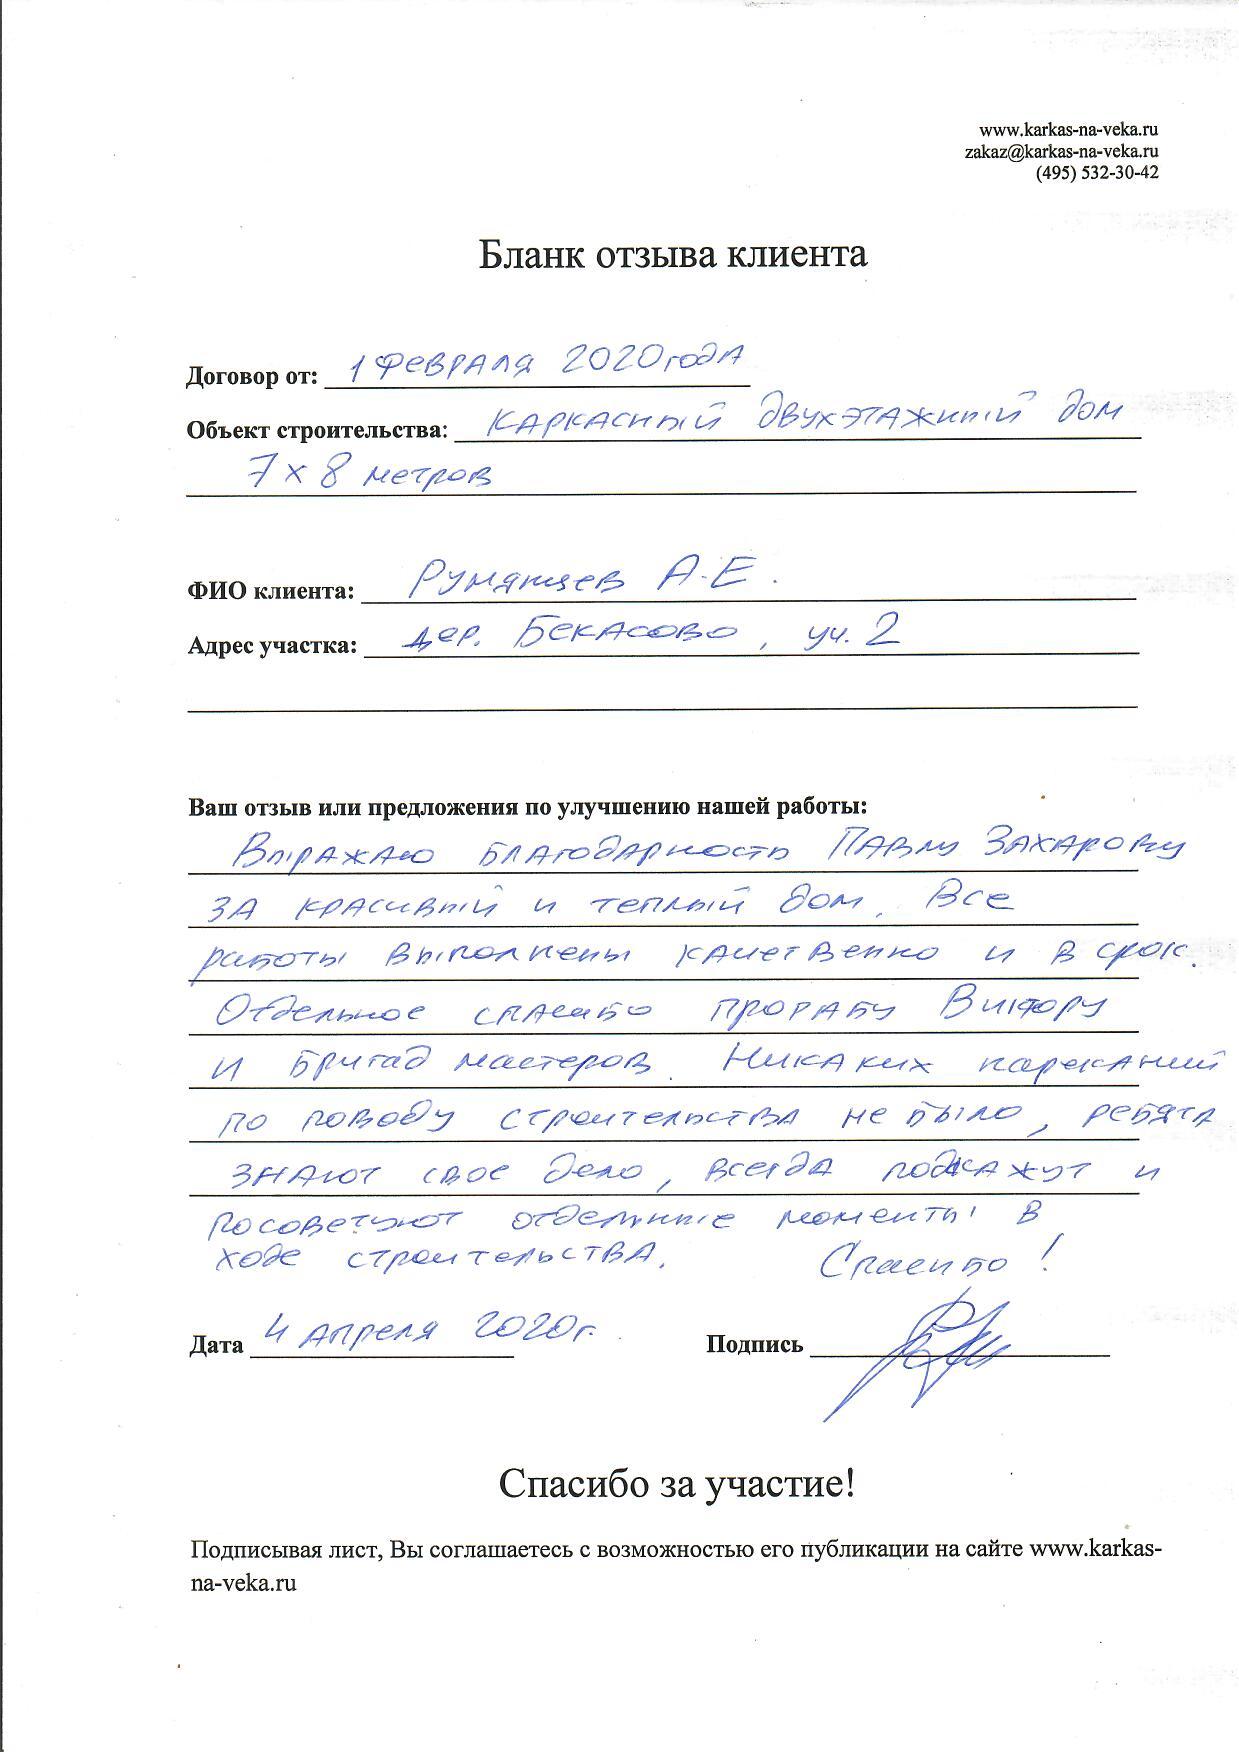 www.karkas-na-veka.ru
zakaz@karkas-na-veka.ru
(495) 532-30-42
Бланк отзыва клиента
Договор от: 1 февраля 2020 года
Объект строительства: каркасный двухэтажный дом
7 х 8 метров
ФИО клиента: Румянцев А.Е.
Адрес участка: дер. Бекасово, уч. 2
Ваш отзыв или предложения по улучшению нашей работы:
Выражаю благодарность Павлу Захарову
за красивый и теплый дом. Все
работы выполнены качественно и в срок.
Отдельное спасибо прорабу Виктору
и бригад мастеров. Никаких нареканий
по поводу строительства не было, ребята
знают свое дело, всегда подскажут и
посоветуют отдельные моменты в
ходе строительства. Спасибо!
Дата 4 апреля 2020г. Подпись
Спасибо за участие!
Подписывая лист, Вы соглашаетесь с возможностью его публикации на сайте www.karkas-
na-veka.ru